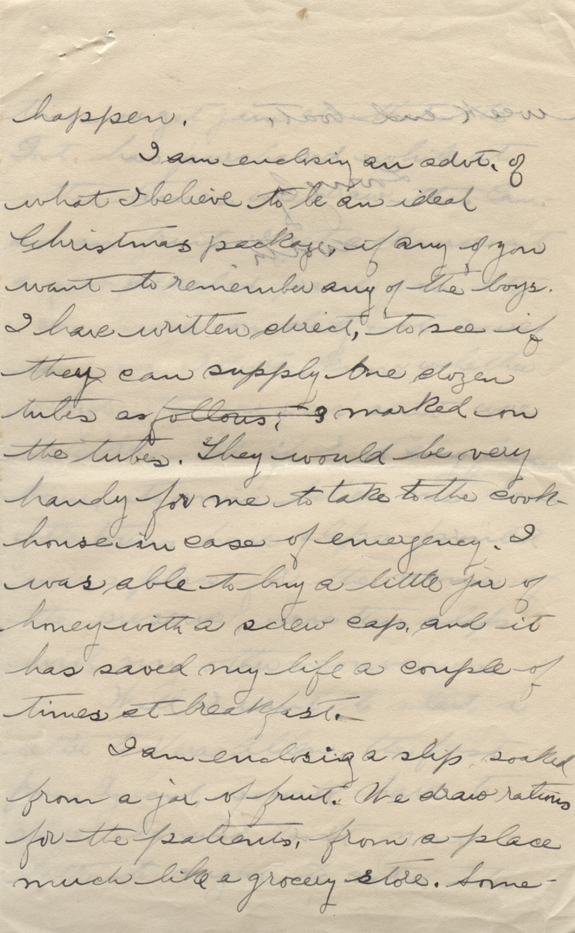 happen.
I am enclosing an advt. of
what I believe to be an ideal
Christmas package, if any of you
want to remember any of the boys.
I have written direct, to see if
they can supply one dozen
tubes as follows; 3 marked on
the tubes. They would be very
handy for me to take to the cook-
house in case of emergency. I
was able to buy a little jar of
honey with a screw cap, and it
has saved my life a couple of
times at breakfast.
I am enclosing a slip soaked
from a jar of fruit. We draw rations
for the patients, from a place
much like a grocery store. Some-